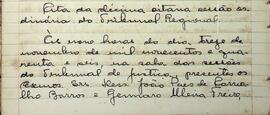 Acta da décima oitava sessão or
dinária do Tribunal Regional.
Às nove horas do dia treze de
novembro de mil novecentos e qua
renta e seis, na sala das sessões
do Tribunal de Justiça, presentes os
Exmos. Srs. Des. João Paes de Carva
lho Barros e Gennaro